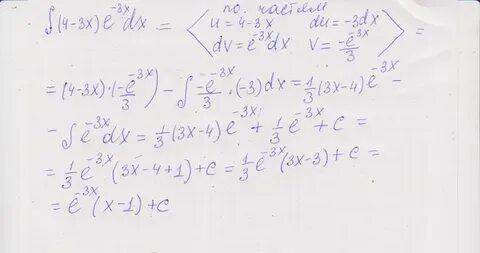 по частям
∫(4-3x)e^{-3x}dx = ⟨ u = 4-3x   du = -3dx ⟩ =
dv = e^{-3x}dx   v = -e^{-3x}/3
= (4-3x)·(-e^{-3x}/3) - ∫ -e^{-3x}/3 ·(-3)dx = 1/3(3x-4)e^{-3x} -
- ∫e^{-3x}dx = 1/3(3x-4)e^{-3x} + 1/3 e^{-3x} + c =
= 1/3 e^{-3x}(3x-4+1)+c = 1/3 e^{-3x}(3x-3)+c =
= e^{-3x}(x-1)+c